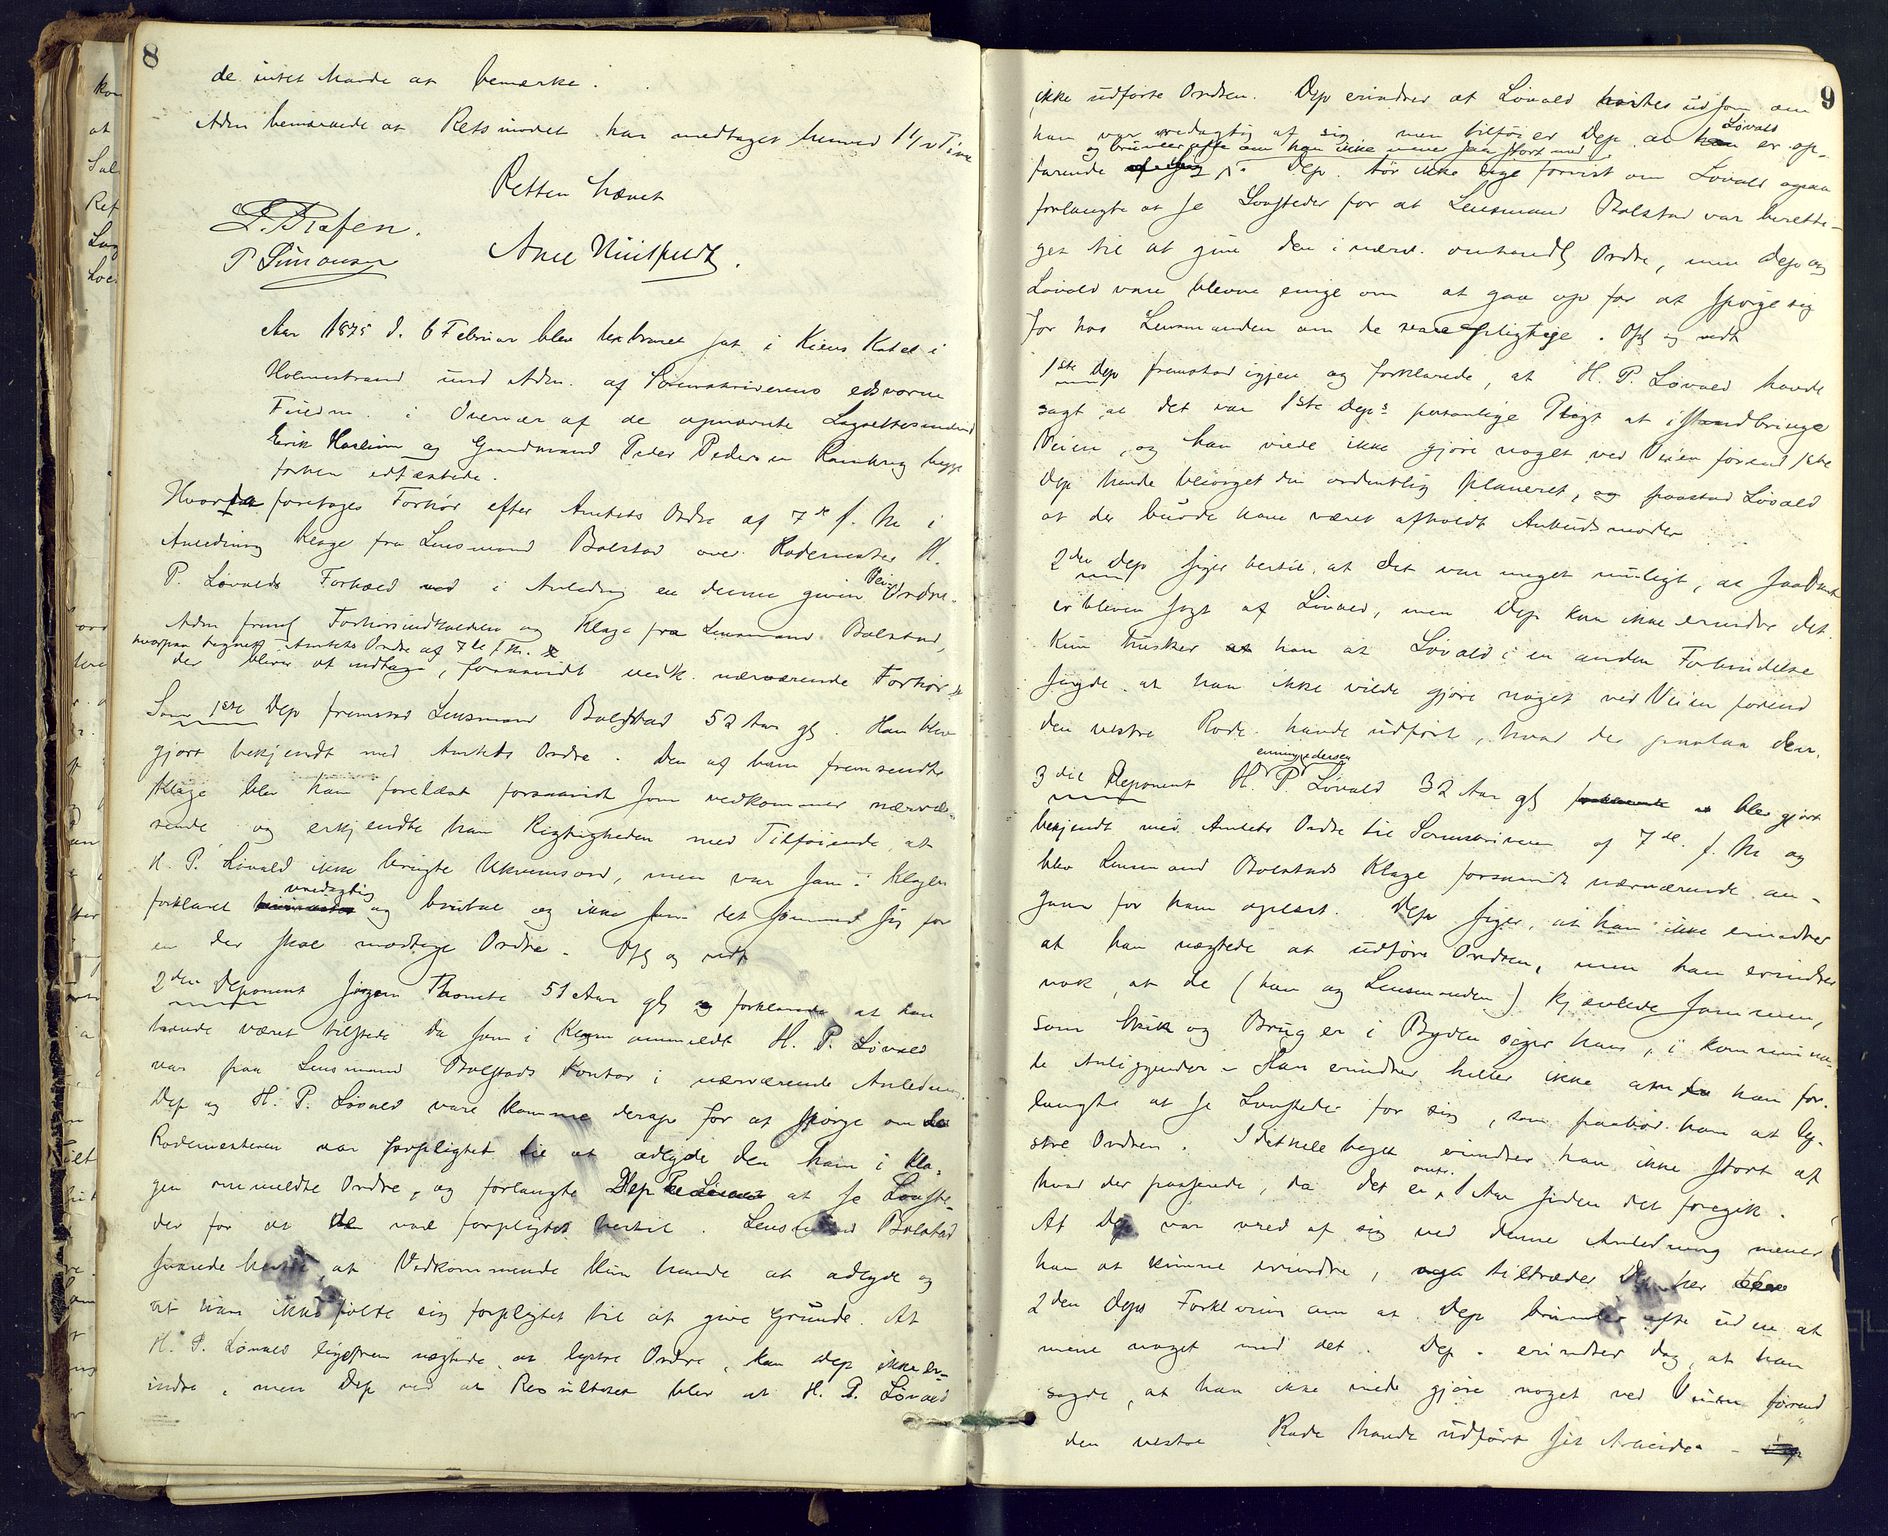 8
de intet havde at bemærke.
Adm bemærkede at Retsmødet har medtaget henved 1 1/2 Time
Retten hævet
P Simonsen
Aar 1875 d. 6 Februar blev Extraret sat i Kiens Hotel i
Holmestrand med Adm. af Sorenskriverens edsvorne
Fuldm. i Overvær af de opnævnte Lagrettesmænd
Erik Haslum og Gaardmand Peder Pedersen
forhen edfæstede.
Hvorda foretages Forhør efter Amtets Ordre af 7de f. M. i
Anledning Klage fra Lensmand Bolstad over Rodemester H.
P. Løvalds Forhold ved i Anledning en denne given Vei-Ordre.
Adm freml Forhørsindkaldelse og Klage fra Lensmand Bolstad,
hvorpaa tegnet Amtets Ordre af 7de f. M.
der bliver at indtage, forsaavidt vedk. nærværende Forhør
Som 1ste Dep fremstod Lensmand Bolstad 52 Aar gl. Han blev
gjort bekjendt med Amtets Ordre. Den af ham fremsendte
Klage blev ham forelæst forsaavidt som vedkommer nærvæ-
rende og erkjendte han Rigtigheden med Tilføiende, at
H. P. Løvald ikke brugte Ukvemsord, men var som i Klagen
forklaret vredagtig og brutal og ikke som det sømmed sig for
en der skal modtage Ordre. Opl og vedt
2den Deponent Jørgen 51 Aar gl og forklarede at han
havde været tilstede da som i Klagen ommeldt H. P. Løvald
var paa Lensmand Bolstads Kontor i nærværende Anledning
Dep og H. P. Løvald vare komne derop for at spørge om
Rodemesteren var forpligtet til at adlyde den ham i Kla-
gen ommeldte Ordre, og forlangte Dep at se Lovste-
der for at de var forpligtet hertil. Lensmand Bolstad
svarede hertil, at Vedkommende kun havde at adlyde og
at han ikke følte sig forpligtet til at give Grunde. At
H. P. Løvald ligefrem nægtede at lystre Ordre, kan Dep ikke er-
indre, men Dep ved at Resultatet blev at H. P. Løvald
9
ikke udførte Ordren. Dep erindrer at Løvald hørtes ud som om
han var vredagtig af sig, men tilføier Dep. at Løvald er op-
og brummer ofte om han ikke mener saa stort med
farende. Dep. tør ikke sige forvist om Løvald ogsaa
forlangte at se Lovsteder for at Lensmand Bolstad var beretti-
get til at give den i nærv. omhandl Ordre, men Dep og
Løvald vare blevne enige om at gaa op for at spørge sig
for hos Lensmanden om de vare pligtige. Opl og vedt
1ste Dep fremstod igjen og forklarede, at H. P. Løvald havde
sagt at det var 1ste Deps personlige Pligt at istandbringe
Veien, og han vilde ikke gjøre noget ved Veien førend 1ste
Dep havde besørget den ordentlig planeret, og paastod Løvald
at der burde have været afholdt Anbudsmøder
2den Dep siger hertil, at det var meget muligt, at saadant
er bleven sagt af Løvald, men Dep kan ikke erindre det.
Kun husker han at Løvald i en anden Forbindelse
sagde at han ikke vilde gjøre noget ved Veien førend
den vestre Rode havde udført, hvad der paalaa den.
3die Deponent H. P. Løvald 32 Aar gl blev gjort
bekjendt med Amtets Ordre til Sorenskriveren af 7de f. M og
blev Lensmand Bolstads Klage forsaavidt nærværende an-
gaar for ham oplæst. Dep siger, at han ikke erindrer
at han nægtede at udføre Ordren, men han erindrer
nok, at de (han og Lensmanden) kjævlede sammen,
som Skik og Brug er i Bygden siger han, i kommuna-
le Anliggender. Han erindrer heller ikke at han for-
langte at se Lovsteder for sig, som paabød ham at ly-
stre Ordren. I det hele taget erindrer han ikke stort af
hvad der passerede, da det er omtr. 1 Aar siden det foregik.
At Dep var vred af sig ved denne Anledning mener
han at kunne erindre, tiltræder Dep her
2den Deps Forklaring om at Dep brumler ofte uden at
mene noget med det. Dep. erindrer dog, at han
sagde, at han ikke vilde gjøre noget ved Veien førend
den vestre Rode havde udført sit Arbeide.